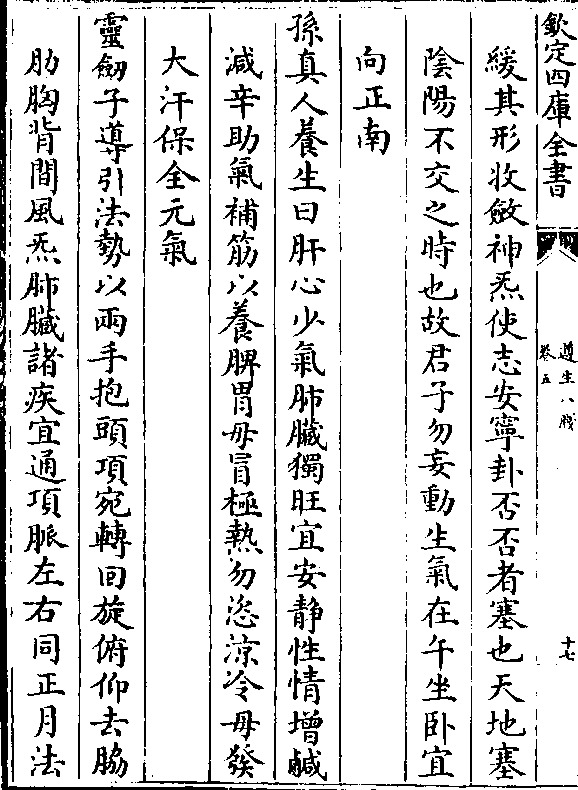 欽定四庫全書
遵生八牋
卷五
十七
緩其形收斂神炁使志安寧卦否否者塞也天地塞
陰陽不交之時也故君子勿妄動生氣在午坐卧宜
向正南
孫真人養生曰肝心少氣肺臟獨旺宜安静性情增鹹
減辛助氣補筋以養脾胃毋冒極熱勿恣涼冷毋發
大汗保全元氣
靈劒子導引法勢以兩手抱頭項宛轉回旋俯仰去脇
肋胸背間風炁肺臟諸疾宜通項脈左右同正月法